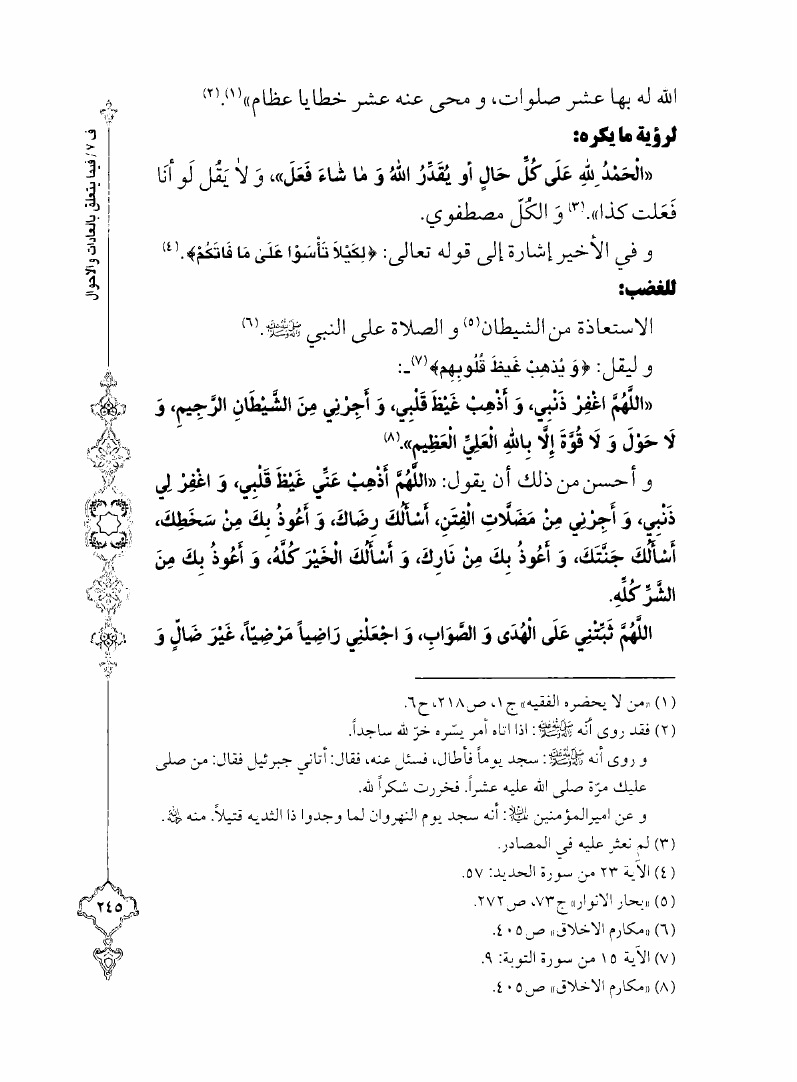 الله له بها عشر صلوات، و محى عنه عشر خطايا عظام»(١).(٢)
لرؤية ما يكره:
«الْحَمْدُ لِلّهِ عَلَى كُلِّ حَالٍ أو يُقَدِّرُ اللهُ وَ مٰا شٰاءَ فَعَلَ»، وَ لاٰ يَقُل لَو أنَا
فَعَلت كذا».(٣) وَ الكُلّ مصطفوي.
و في الأخير إشارة إلى قوله تعالى: ﴿لِكَيْلاَ تَأْسَوْا عَلَىٰ مَا فَاتَكُمْ﴾.(٤)
للغضب:
الاستعاذة من الشيطان(٥) و الصلاة على النبي ﷺ.(٦)
و ليقل: ﴿وَ يُذهِبْ غَيظَ قُلُوبِهِم﴾(٧)ـ:
«اللَّهُمَّ اغْفِرْ ذَنْبِي، وَ أَذْهِبْ غَيْظَ قَلْبِي، وَ أَجِرْنِي مِنَ الشَّيْطَانِ الرَّجِيمِ، وَ
لَا حَوْلَ وَ لَا قُوَّةَ إِلَّا بِاللهِ الْعَلِيِّ الْعَظِيمِ».(٨)
و أحسن من ذلك أن يقول: «اللَّهُمَّ أَذْهِبْ عَنِّي غَيْظَ قَلْبِي، وَ اغْفِرْ لِي
ذَنْبِي، وَ أَجِرْنِي مِنْ مَضَلَّاتِ الْفِتَنِ، أَسْأَلُكَ رِضَاكَ، وَ أَعُوذُ بِكَ مِنْ سَخَطِكَ،
أَسْأَلُكَ جَنَّتَكَ، وَ أَعُوذُ بِكَ مِنْ نَارِكَ، وَ أَسْأَلُكَ الْخَيْرَ كُلَّهُ، وَ أَعُوذُ بِكَ مِنَ
الشَّرِّ كُلِّهِ.
اللَّهُمَّ ثَبِّتْنِي عَلَى الْهُدَى وَ الصَّوَابِ، وَ اجْعَلْنِي رَاضِياً مَرْضِيّاً، غَيْرَ ضَالٍّ وَ
(١) «من لا يحضره الفقيه» ج١، ص٢١٨، ح٦.
(٢) فقد روى أنّه ﷺ: اذا اتاه أمر يسّره خرّ لله ساجداً.
و روى أنه ﷺ: سجد يوماً فأطال، فسئل عنه، فقال: أتاني جبرئيل فقال: من صلى
عليك مرّة صلى الله عليه عشراً. فخررت شكراً لله.
و عن اميرالمؤمنين: أنه سجد يوم النهروان لما وجدوا ذا الثديه قتيلاً. منه.
(٣) لم نعثر عليه في المصادر.
(٤) الآية ٢٣ من سورة الحديد: ٥٧.
(٥) «بحار الانوار» ج٧٣، ص٢٧٢.
(٦) «مكارم الاخلاق» ص٤٠٥.
(٧) الآية ١٥ من سورة التوبة: ٩.
(٨) «مكارم الاخلاق» ص٤٠٥.
ف ٧/ فيما يتعلق بالعادات والاحوال
٢٤٥